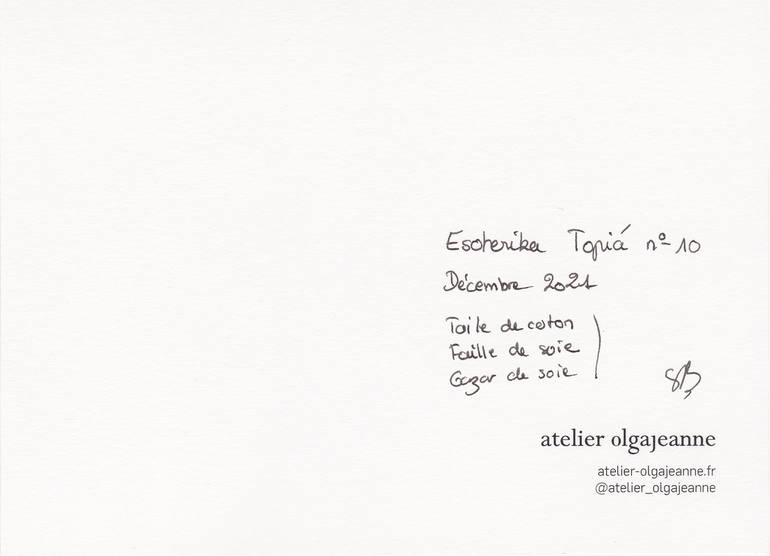 Esoterika Topiá nº 10
Décembre 2021
Toile de coton
Faille de soie
Gazar de soie
SB
atelier olgajeanne
atelier-olgajeanne.fr
@atelier_olgajeanne